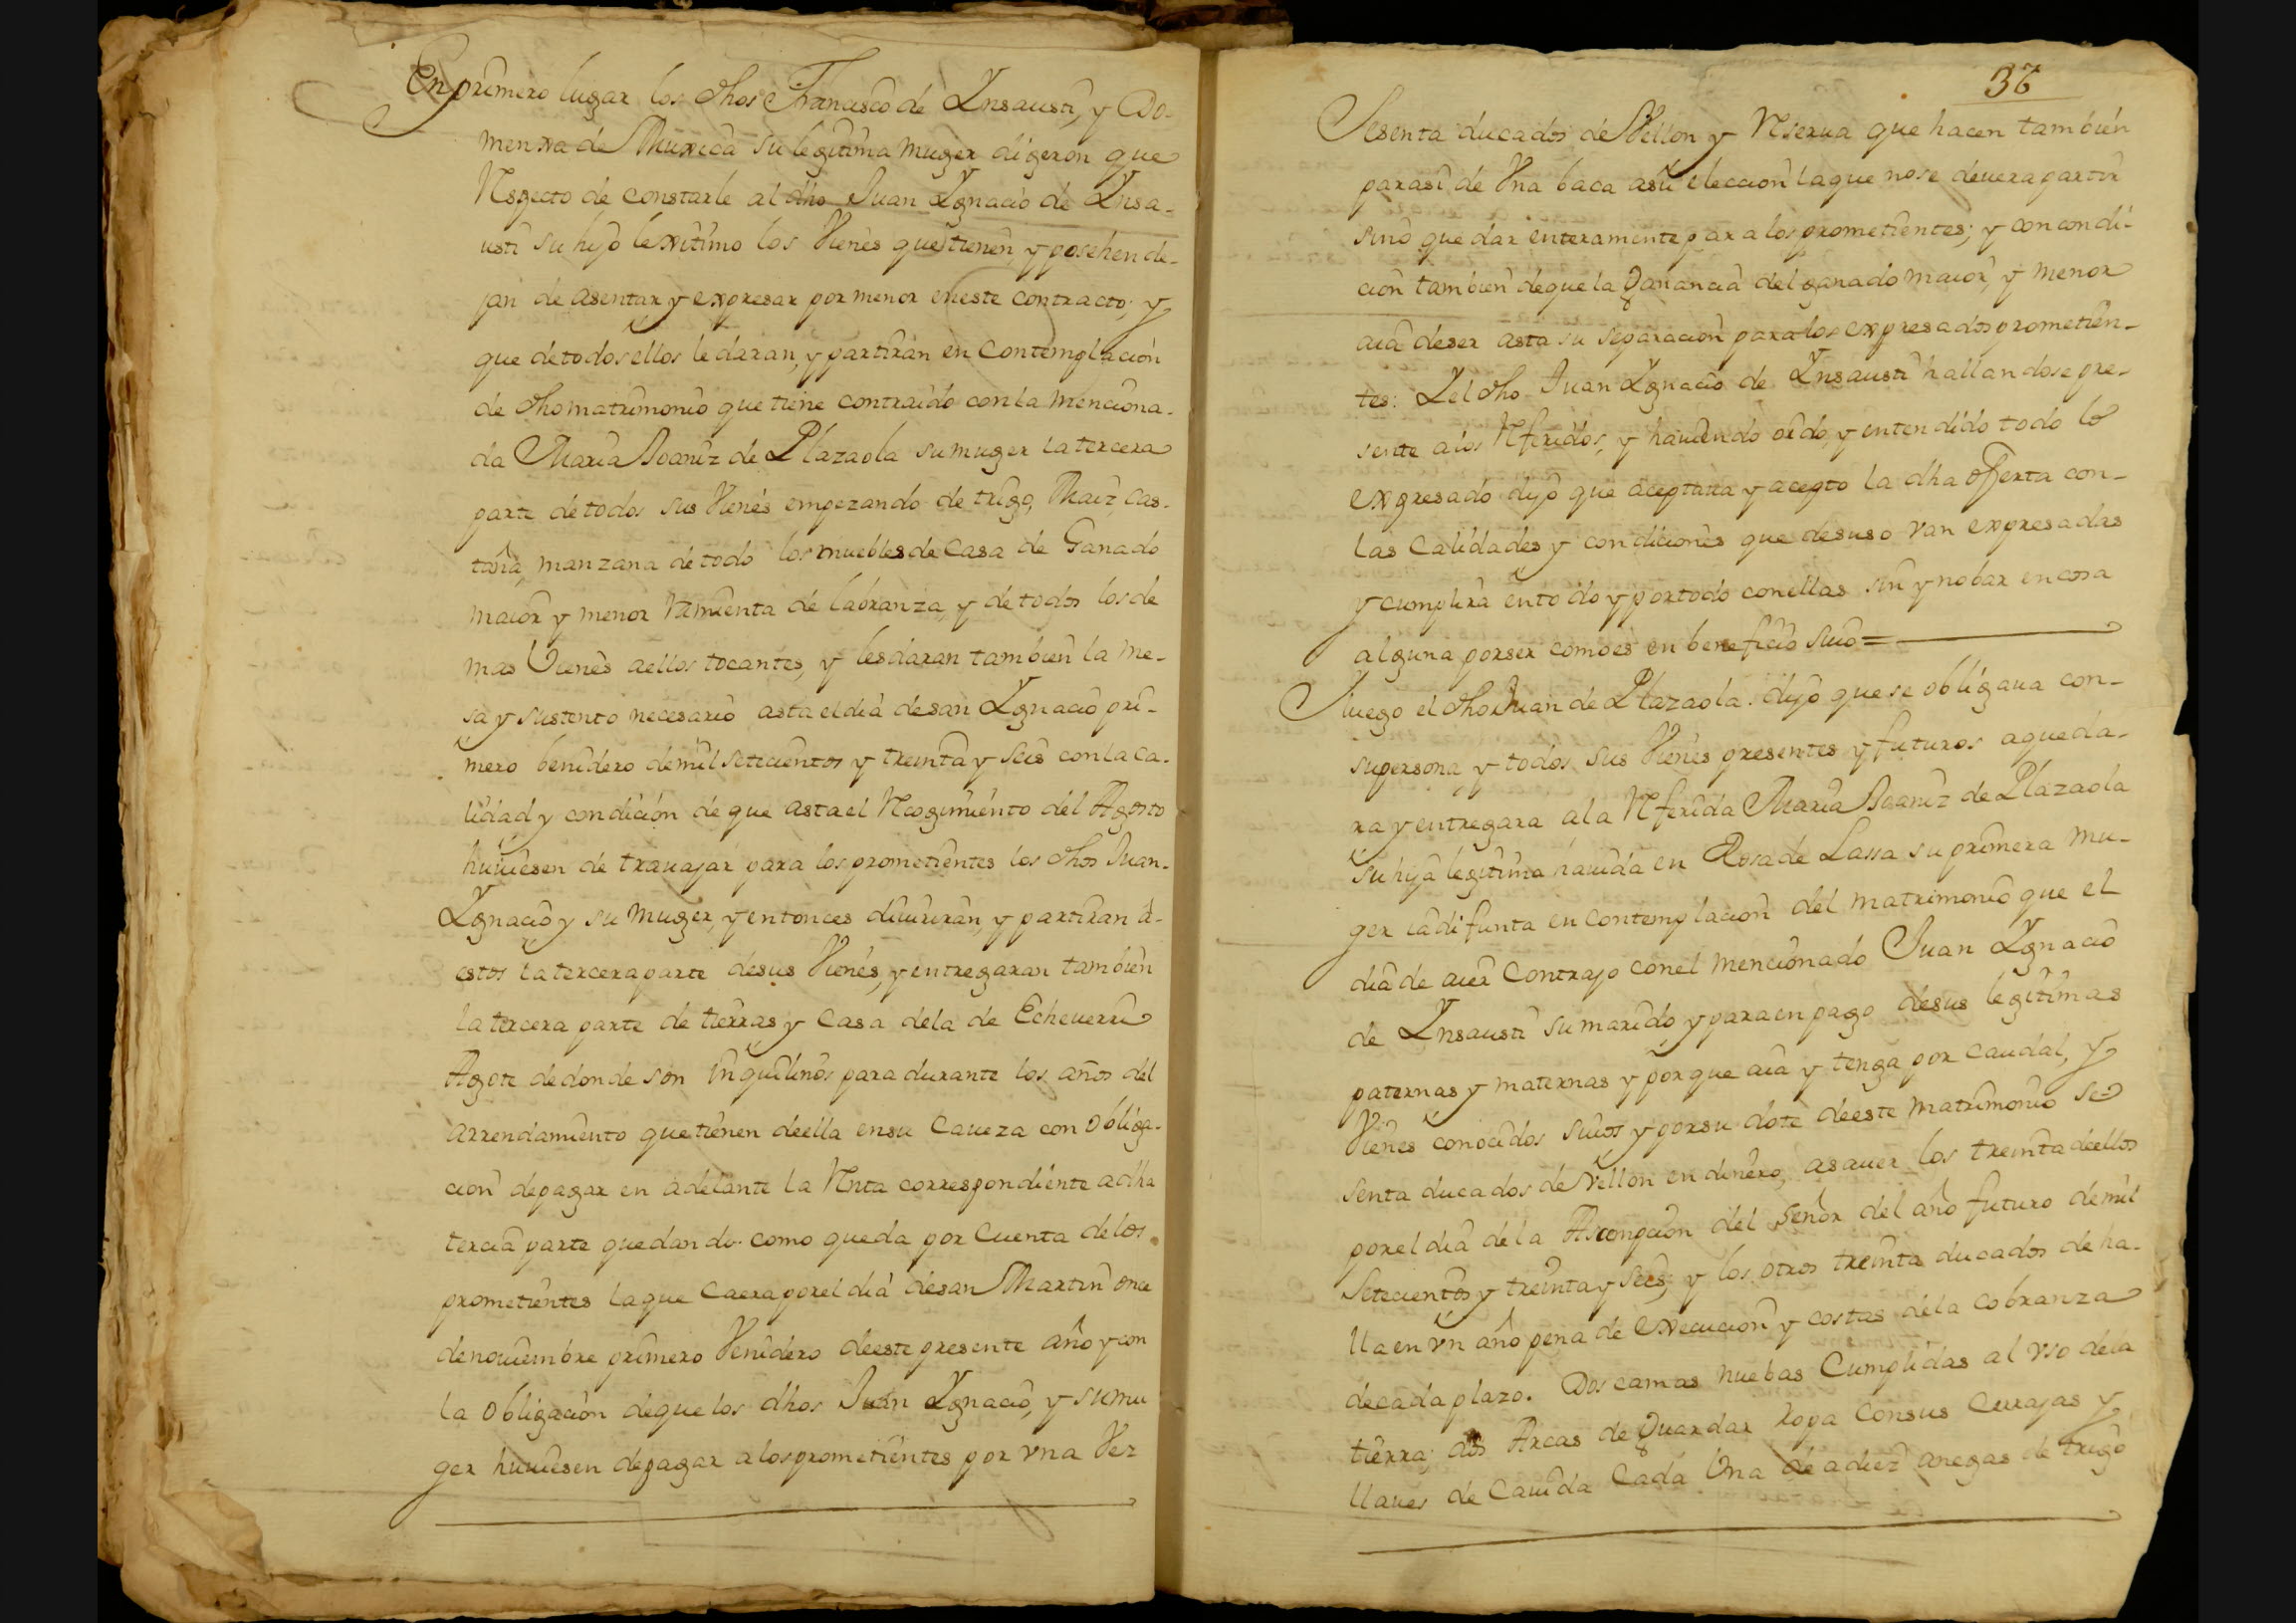 En primero lugar los dhos Franusco de Ynsausti, y Do-
menxa de Muxica su legitima muger digeron que
Respecto de constarle al dho Juan Ygnacio de Ynsa-
usti su hijo lexitimo los Vienes que tienen, y posehen de-
jan de asentar y expresar por menor en este contracto; y
que de todos ellos le daran, y partiran en Contemplacion
de dho matrimonio que tiene contraido con la menciona-
da Maria Joaniz de Plazaola su muger la tercera
parte de todos sus Vienes empezando de trigo, Maiz, cas-
taña, manzana de todo los muebles de Casa de Ganado
maior y menor Remienta de labranza, y de todos los de
mas Vienes a ellos tocantes, y les daran tambien la me-
sa y sustento necesario asta el dia de san Ygnacio pri-
mero benidero de mil setecientos y treinta y seis con la ca-
lidad y condicion de que asta el Recogimiento del Agosto
huuiesen de trauajar para los prometientes los dhos Juan-
Ygnacio y su muger, y entonces diuiriran, y partiran a-
estos la tercera parte de sus Vienes, y entregaran tambien
la tercera parte de tierras y Casa de la de Echeuerri
Agote de donde son inquilinos para durante los años del
arrendamiento que tienen de ella en su Caueza con obliga-
cion de pagar en adelante la Renta correspondiente a dha
tercia parte quedando como queda por Cuenta de los
prometientes la que Caera por el dia de san Martin once
de nouiembre primero Venidero de este presente año y con
la obligacion de que los dhos Juan Ygnacio, y su mu
ger huuiesen de pagar a los prometientes por vna Vez
36
Sesenta ducados de Vellon y Reserua que hacen tambien
para si de Vna baca a su eleccion la que no se deuera partir
sino quedar enteramente para los prometientes; y con condi-
cion tambien de que la Ganancia del ganado maior, y menor
aia de ser asta su separacion para los expresados prometien-
tes: Y el dho Juan Ygnacio de Ynsausti hallandose pre-
sente a los Referidos, y hauiendo oido, y entendido todo lo
expresado dijo que aceptaua y acepto la dha offerta con-
las Calidades y condiciones que desuso van expresadas
y cumplira en todo y por todo con ellas sin ynobar en cosa
alguna por ser como es en beneficio suio =
Luego el dho Juan de Plazaola dijo que se obligaua con-
su persona, y todos sus Vienes presentes y futuros a que da-
ra y entregara a la Referida Maria Joaniz de Plazaola
su hija legitima hauida en Rosa de Lassa su primera mu-
ger ia difunta en contemplacion del matrimonio que el
dia de aier Contrajo con el mencionado Juan Ygnacio
de Ynsausti su marido, y para en pago de sus legitimas
paternas y maternas y porque aia y tenga por caudal, y
Vienes conocidos suios y por su dote de este matrimonio se-
senta ducados de Vellon en dinero, a sauer los treinta de ellos
por el dia de la Ascempcion del señor del año futuro de mil
Setecientos y treinta y seis; y los otros treinta ducados de ha-
lla en vn año pena de execucion y costas de la cobranza
de cada plazo. Dos camas nuebas Cumplidas al vso de la
tierra; dos Arcas de Guardar Ropa Con sus Cerrajas y
llaues de Cauida Cada Vna de a diez anegas de trigo